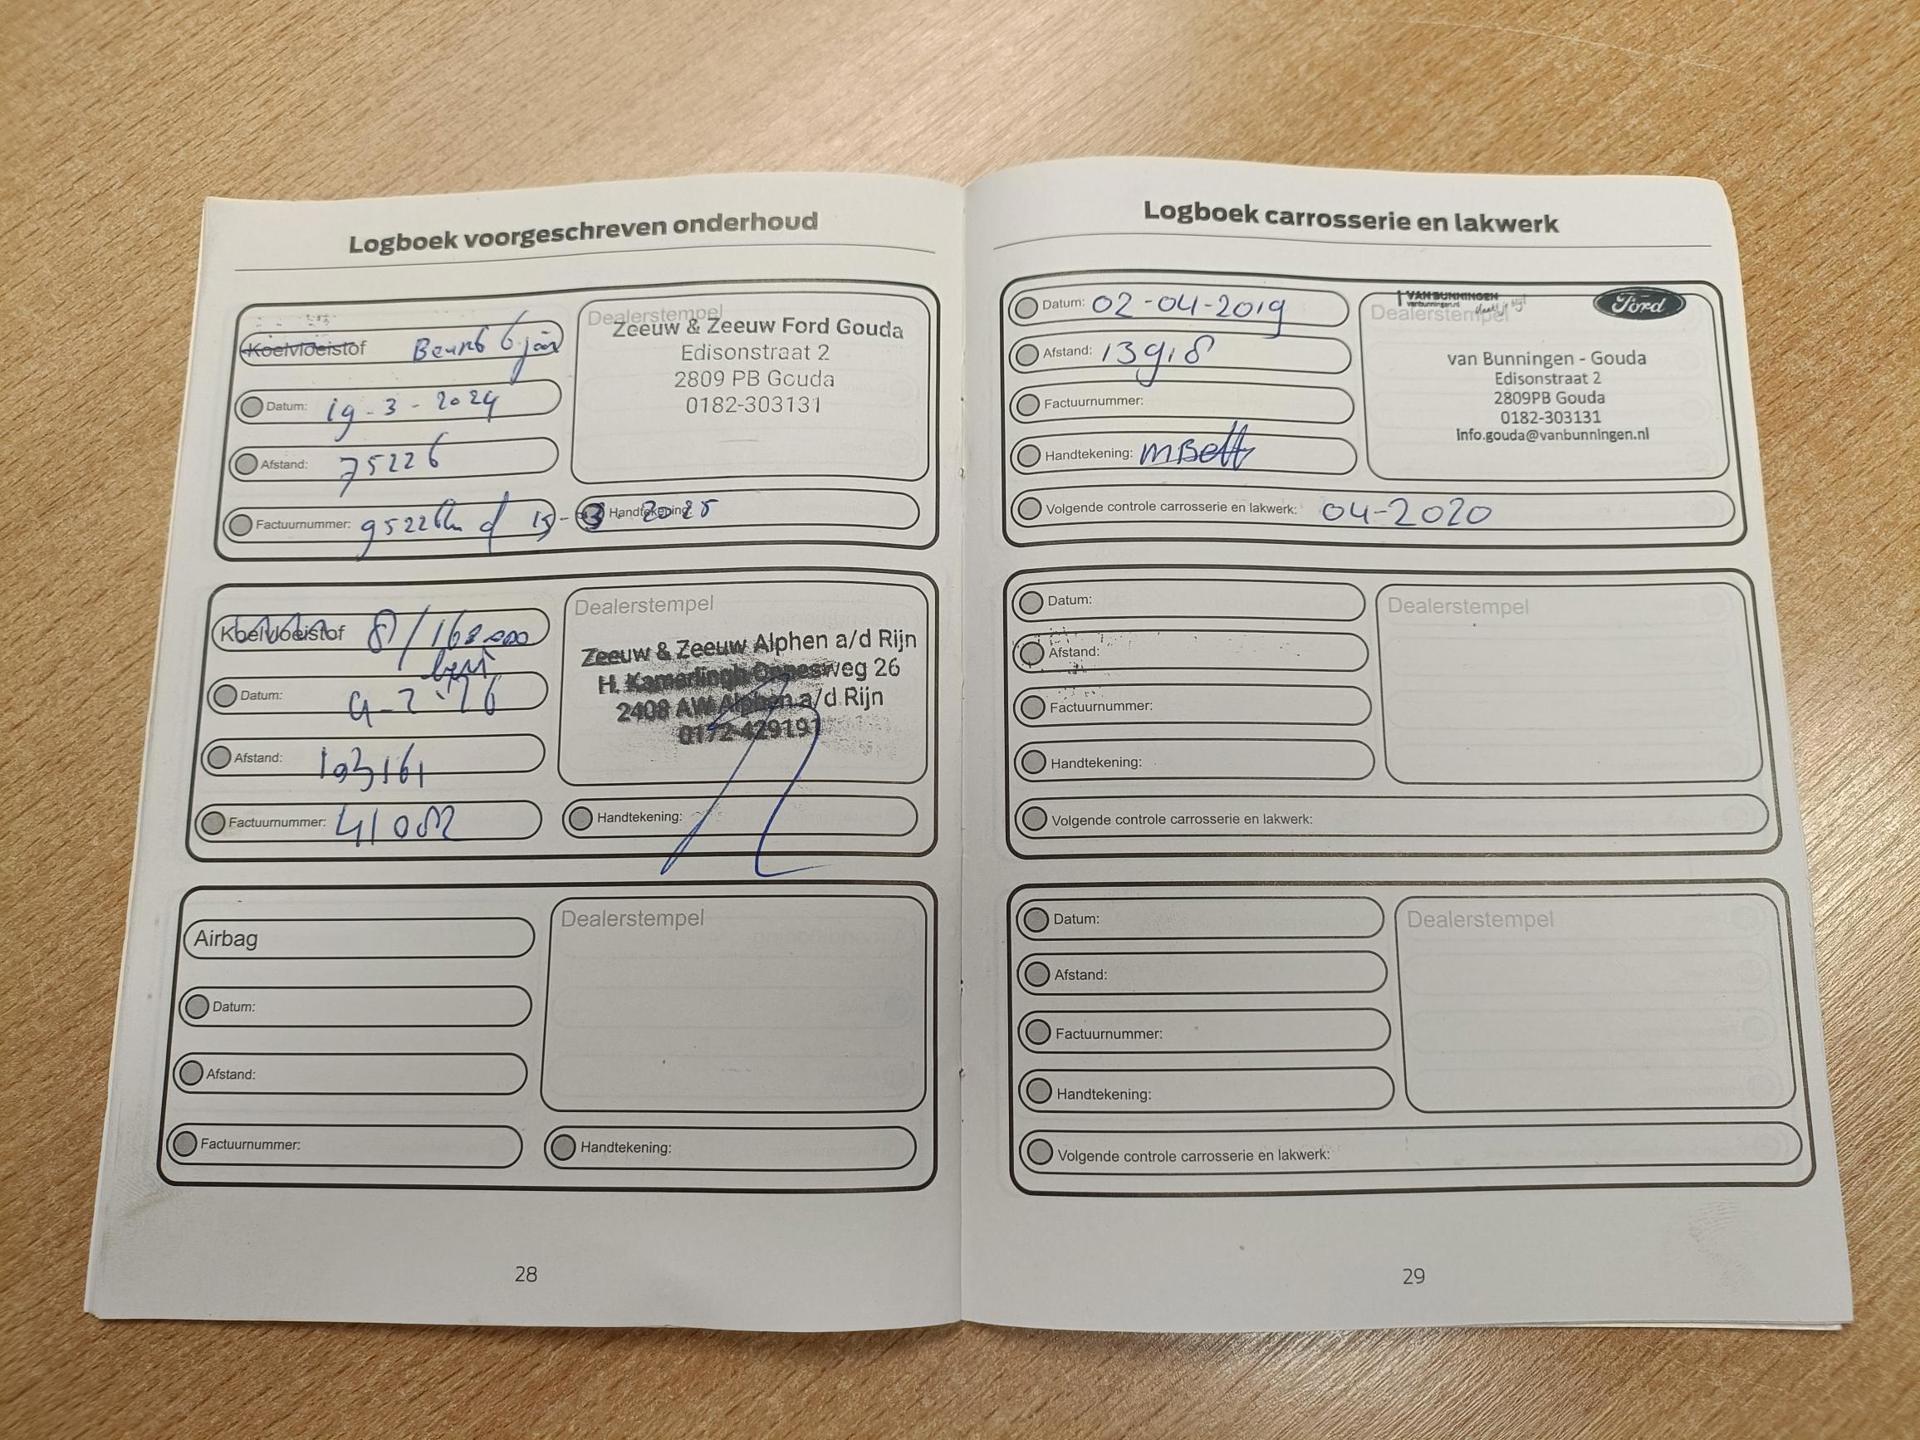 Logboek voorgeschreven onderhoud
Koelvloeistof Beurt 6 jaar
Datum: 19-3-2024
Afstand: 75226
Factuurnummer: 95226km of 19-3-2025
Handtekening:
Dealerstempel
Zeeuw & Zeeuw Ford Gouda
Edisonstraat 2
2809 PB Gouda
0182-303131
Koelvloeistof 8/160.000
Datum:
Afstand: 103161
Factuurnummer:
Dealerstempel
Zeeuw & Zeeuw Alphen a/d Rijn
H. Kamerlingh Onnesweg 26
2408 AW Alphen a/d Rijn
0172-429191
Handtekening:
Airbag
Datum:
Afstand:
Factuurnummer:
Dealerstempel
Handtekening:
28
Logboek carrosserie en lakwerk
Datum: 02-04-2019
Afstand: 13918
Factuurnummer:
Handtekening:
Volgende controle carrosserie en lakwerk: 04-2020
Dealerstempel
VAN BUNNINGEN
Ford
van Bunningen - Gouda
Edisonstraat 2
2809PB Gouda
0182-303131
info.gouda@vanbunningen.nl
Datum:
Afstand:
Factuurnummer:
Handtekening:
Volgende controle carrosserie en lakwerk:
Dealerstempel
Datum:
Afstand:
Factuurnummer:
Handtekening:
Volgende controle carrosserie en lakwerk:
Dealerstempel
29